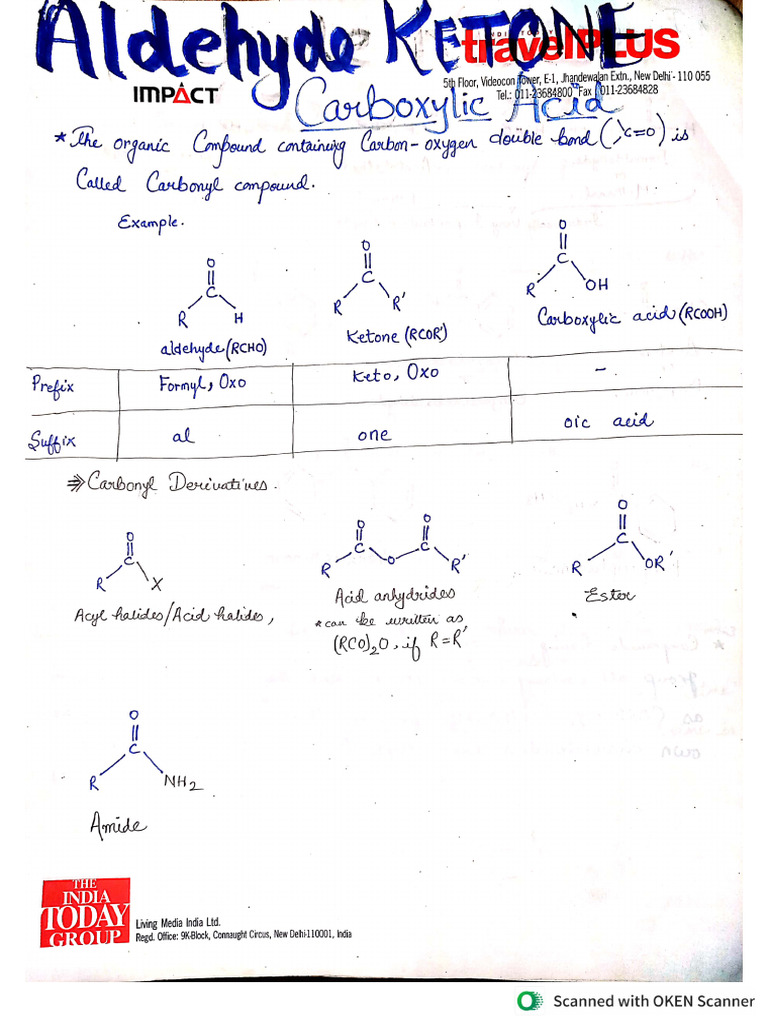 Aldehyde KETONE
INDIA TODAY
travelPLUS
5th Floor, Videocon Tower, E-1, Jhandewalan Extn., New Delhi - 110 055
IMPACT
Tel.: 011-23684800 Fax : 011-23684828
Carboxylic Acid
* The organic Compound containing Carbon-oxygen double bond (>C=O) is
Called Carbonyl compound.
Example.
O
C
R H
aldehyde (RCHO)
O
C
R R'
Ketone (RCOR')
O
C
R OH
Carboxylic acid (RCOOH)
Prefix Formyl, Oxo Keto, Oxo -
Suffix al one oic acid
⇒ Carbonyl Derivatives.
O
C
R X
Acyl halides/Acid halides,
O O
C C
R O R'
Acid anhydrides
* can be written as
(RCO)2O, if R=R'
O
C
R OR'
Ester
O
C
R NH2
Amide
THE
INDIA
TODAY
GROUP
Living Media India Ltd.
Regd. Office: 9K-Block, Connaught Circus, New Delhi-110001, India
Scanned with OKEN Scanner